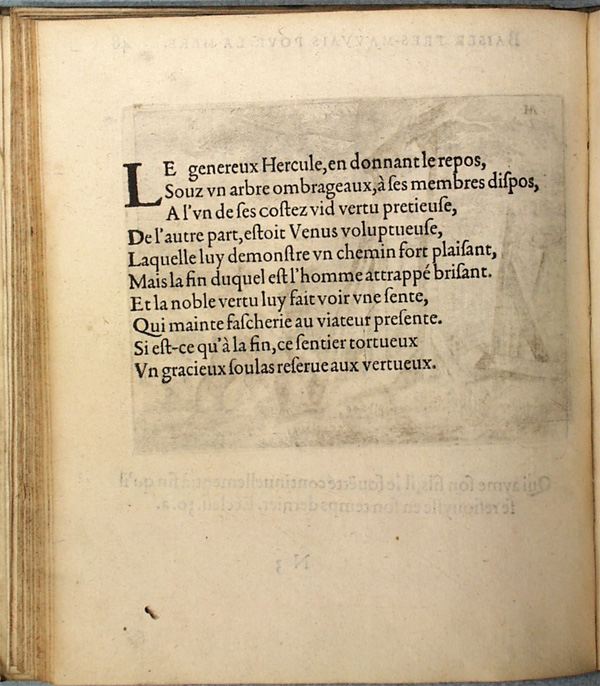 LE genereux Hercule, en donnant le repos,
Souz vn arbre ombrageaux, à ſes membres diſpos,
A l'vn de ſes coſtez vid vertu pretieuſe,
De l'autre part, eſtoit Venus voluptueuſe,
Laquelle luy demonſtre vn chemin fort plaiſant,
Mais la fin duquel eſt l'homme attrappé briſant.
Et la noble vertu luy fait voir vne ſente,
Qui mainte faſcherie au viateur preſente.
Si eſt-ce qu'à la fin, ce ſentier tortueux
Vn gracieux ſoulas reſerue aux vertueux.